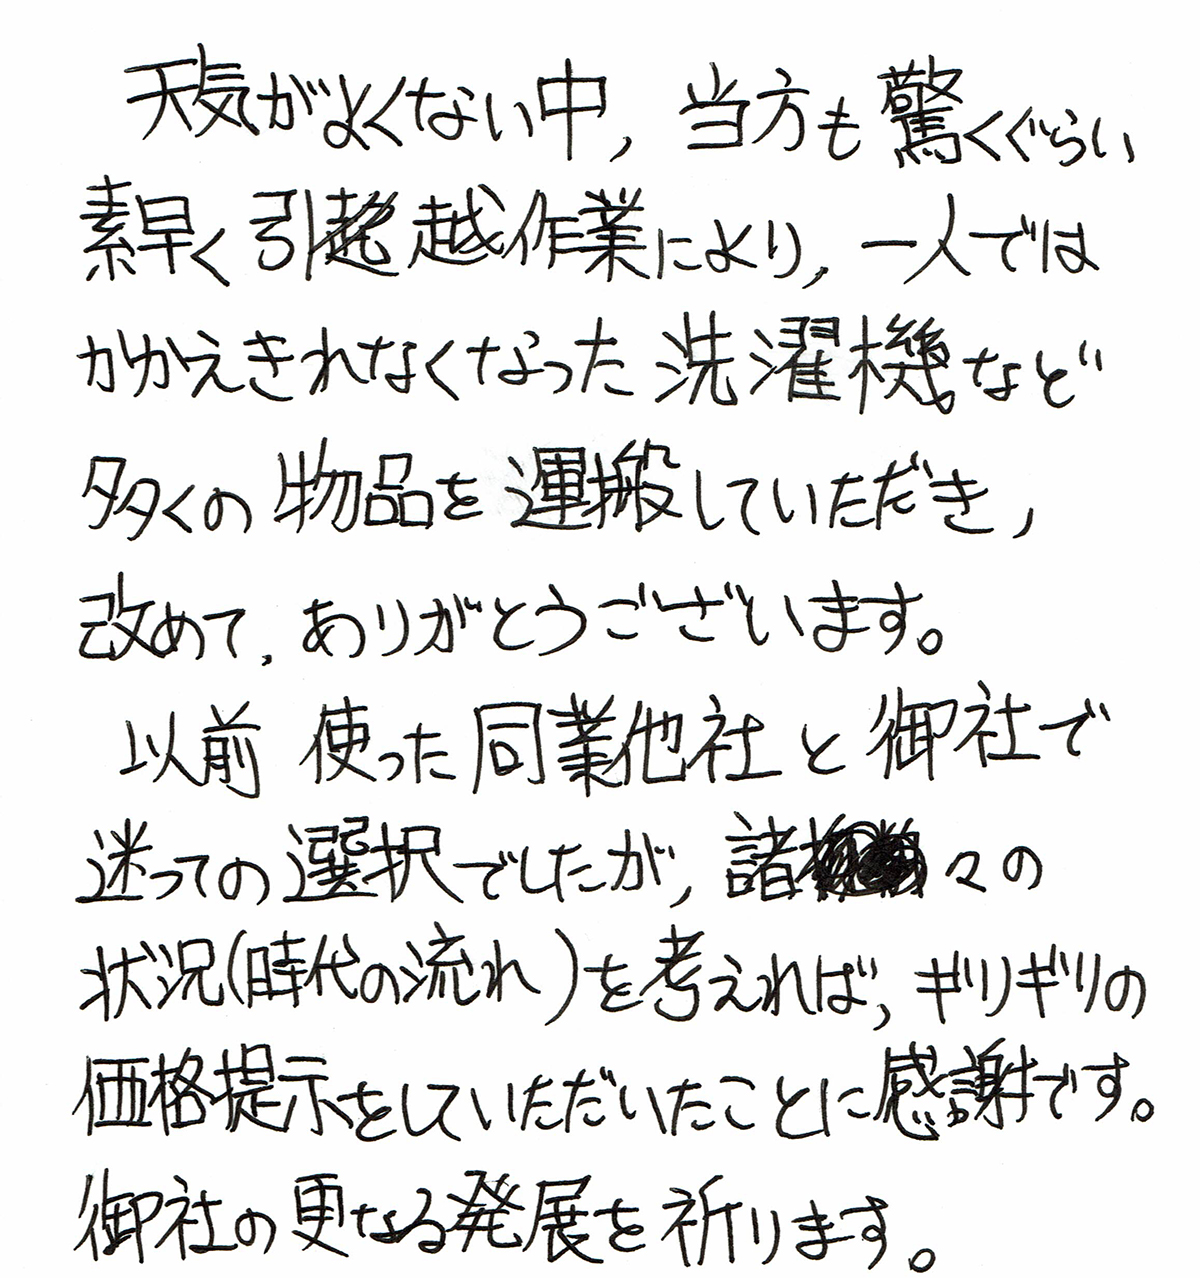 天気がよくない中, 当方も驚くぐらい
素早く引越作業により, 一人では
かかえきれなくなった洗濯機など
多くの物品を運搬していただき,
改めて, ありがとうございます。
以前使った同業他社と御社で
迷っての選択でしたが, 諸々の
状況(時代の流れ)を考えれば, ギリギリの
価格提示をしていただいたことに感謝です。
御社の更なる発展を祈ります。